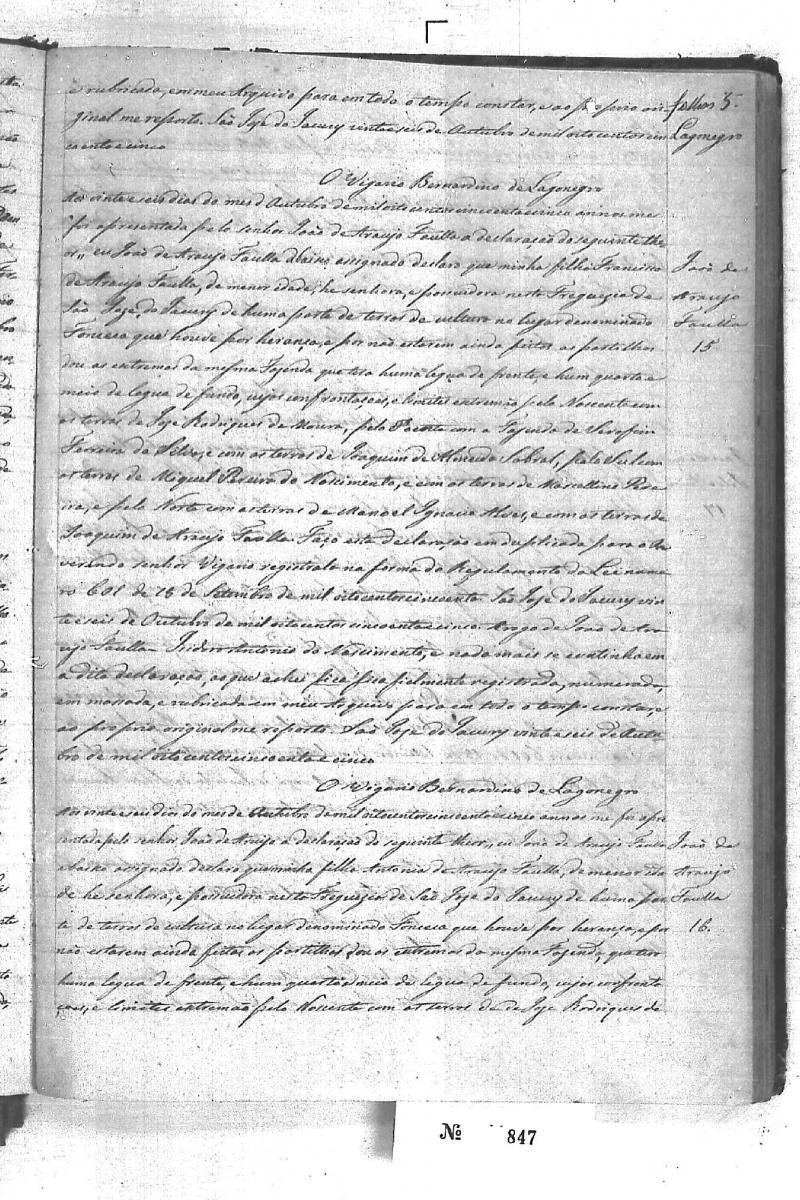 e rubricada, em meu Arquivo para em todo o tempo constar, e ao proprio ori
ginal me reporto. São Joze do Jacury vinte e seis de Outubro de mil oito centos cin
coenta e cinco
folhas 5.
Lagonegro
O Vigario Bernardino de Lagonegro
Aos vinte e seis dias do mes d'Outubro de mil oito centos cincoenta e cinco annos me
foi apresentada pelo senhor João de Araujo Faulla a declaração do seguinte the
or,, eu João de Araujo Faulla abaixo assignado declaro que minha filha Francisca
de Araujo Faulla, de menor idade, he senhora, e possuidora nesta Freguezia de
São Joze do Jacury de huma parte de terras de cultura no lugar denominado
Fonseca que houve por herança, e por não estarem ainda feitas as partilhas
dou as extremas da mesma Fazenda que tera huma legua de frente, e hum quarto e
meio de legua de fundo, cujas confrontaçoes, e limites extremão pelo Nascente com
as terras de Joze Rodrigues de Moura, pelo Poente com a Fazenda de Serafim
Ferreira da Silva, e com as terras de Joaquim de Almeida Cabral, pelo Sul com
as terras de Miguel Pereira do Nascimento, e com as terras de Marcellino Pere
ira, e pelo Norte com as terras de Manoel Ignacio Alves, e com as terras de
Joaquim de Araujo Faulla. Faço esta declaração em duplicada para o Re
verendo senhor Vigario registrala na forma do Regulamento da Lei nume
ro 601 de 18 de Setembro de mil oito centos cincoenta. São Joze do Jacury vin
te e seis de Outubro de mil oito centos cincoenta e cinco. Arogo de João de Ara
ujo Faulla Izidoro Antonio do Nascimento, e nada mais se continha em
a dita declaração, ao que achei fica fielmente registrada, numerada,
em massada, e rubricada em meu Arquivo para em todo o tempo constar, e
ao proprio original me reporto. São Joze do Jacury vinte e seis de Outu
bro de mil oito centos cincoenta e cinco
João de
Araujo
Faulla
15
O Vigario Bernardino de Lagonegro
Aos vinte e seis dias do mes de Outubro de mil oito centos cincoenta e cinco annos me foi apre
sentada pelo senhor João de Araujo a declaração do seguinte theor,, eu João de Araujo Faulla
abaixo assignado declaro que minha filha Antonia de Araujo Faulla, de menor ida
de he senhora, e possuidora nesta Freguezia de São Joze do Jacury de huma par
te de terras de cultura no lugar denominado Fonseca que houve por herança, e por
não estarem ainda feitas as partilhas dou as extremas da mesma Fazenda, que tera
huma legua de frente, e hum quarto e meio de legua de fundo, cujas confronta
çoes, e limites extremão pelo Nascente com as terras de de Joze Rodrigues de
João de
Araujo
Faulla
16.
No 847